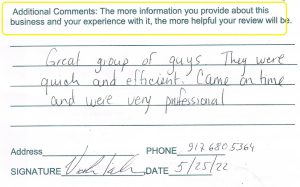 Additional Comments: The more information you provide about this
business and your experience with it, the more helpful your review will be.
Great group of guys They were
quick and efficient. Came on time
and were very professional
Address PHONE 917 680 5364
SIGNATURE DATE 5/25/22